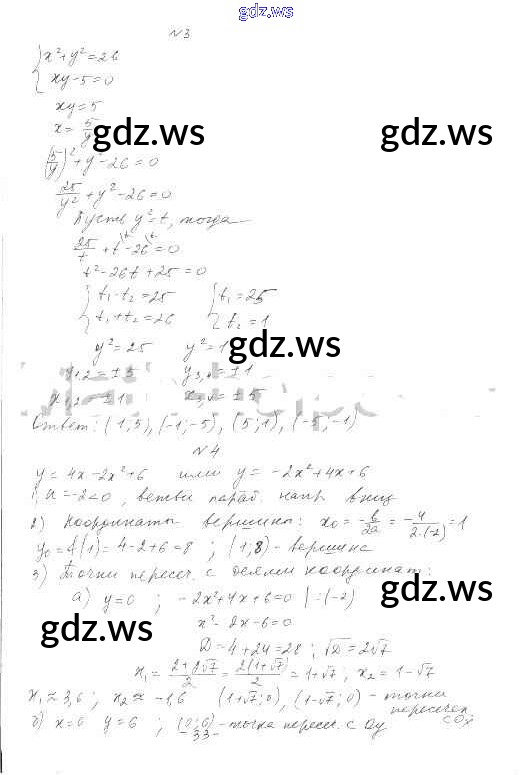 gdz.ws
№3
{ x²+y²=26
xy-5=0
xy=5
x= 5/y
(5/y)²+y²-26=0
25/y²+y²-26=0
Пусть y²=t, тогда
25/t+t-26=0
t²-26t+25=0
{ t₁·t₂=25 { t₁=25
t₁+t₂=26 t₂=1
y²=25 y²=1
y₁,₂=±5 y₃,₄=±1
x₁,₂=±1 x₃,₄=±5
Ответ: (1;5), (-1;-5), (5;1), (-5;-1)
№4
y=4x-2x²+6 или y=-2x²+4x+6
1) a=-2<0, ветви параб. напр. вниз
2) Координаты вершины: x₀=-b/2a=-4/2·(-2)=1
y₀=y(1)=4-2+6=8 ; (1;8)-вершина
3) Точки пересеч. с осями координат:
а) y=0 ; -2x²+4x+6=0 |:(-2)
x²-2x-6=0
D=4+24=28 ; √D=2√7
x₁=2+2√7/2=2(1+√7)/2=1+√7 ; x₂=1-√7
x₁≈3,6 ; x₂≈-1,6 (1+√7;0), (1-√7;0)-точки
пересечен. с Ox
б) x=0 y=6 ; (0;6)-точка пересеч. с Oy
-33-
gdz.ws
gdz.ws
gdz.ws
gdz.ws
gdz.ws